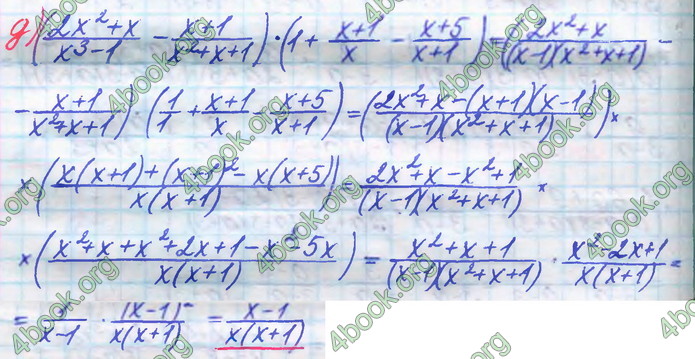 д) ((2x²+x)/(x³-1) - (x+1)/(x²+x+1)) · (1 + (x+1)/x - (x+5)/(x+1)) = (2x²+x)/((x-1)(x²+x+1)) -
- (x+1)/(x²+x+1)) · (1/1 + (x+1)/x - (x+5)/(x+1)) = ((2x²+x-(x+1)(x-1))/((x-1)(x²+x+1))) ×
× ((x(x+1)+(x+1)²-x(x+5))/(x(x+1))) = (2x²+x-x²+1)/((x-1)(x²+x+1)) ×
× ((x²+x+x²+2x+1-x²-5x)/(x(x+1))) = (x²+x+1)/((x-1)(x²+x+1)) · (x²-2x+1)/(x(x+1)) =
= 1/(x-1) · (x-1)²/(x(x+1)) = (x-1)/(x(x+1))
4book.org